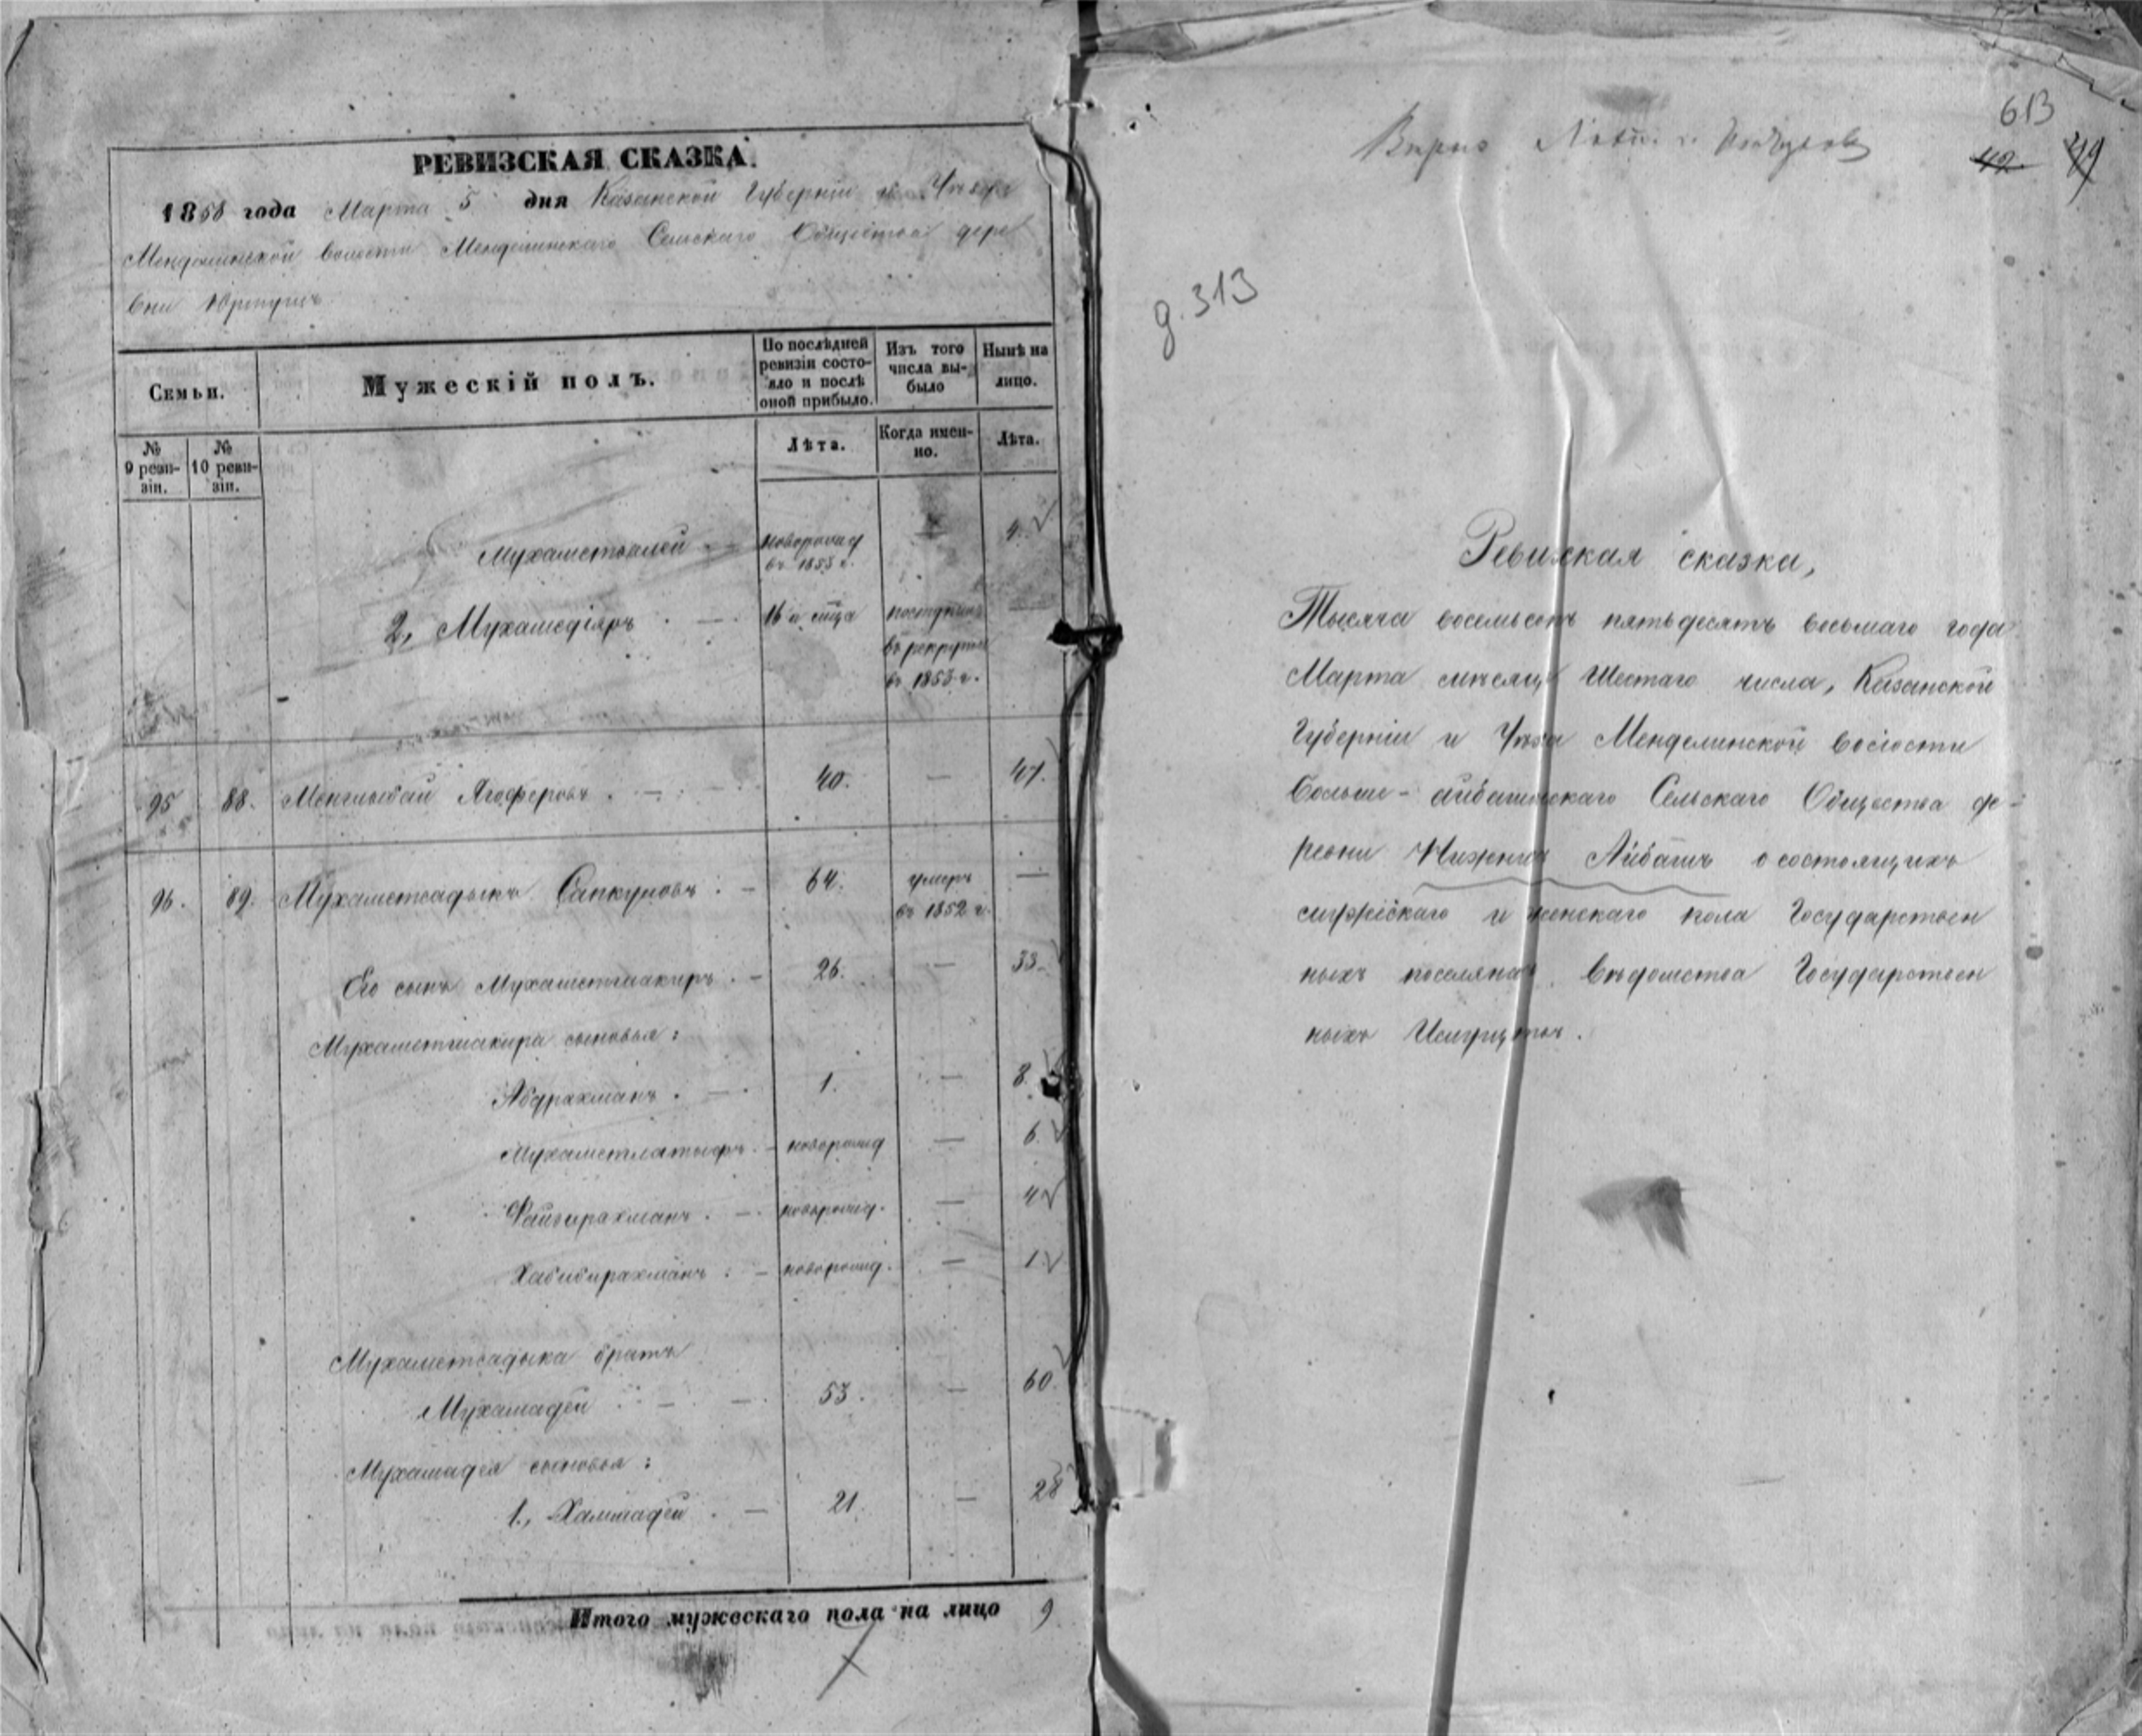 РЕВИЗСКАЯ СКАЗКА.
1858 года Марта 5 дня Казанской Губернiи и Уѣзда
Менделинской волости Менделинскаго Сельскаго Общества дере
вни Юртушъ
Семьи.
Мужескiй полъ.
По послѣдней ревизiи состояло и послѣ оной прибыло.
Изъ того числа выбыло
Нынѣ на лицо.
№ 9 ревизiи.
№ 10 ревизiи.
Лѣта.
Когда именно.
Лѣта.
Мухаметвалей новорожд въ 1853 г. — 4.
2, Мухамедiяръ 16 поступилъ въ рекруты въ 1853 г. —
95 88. Менглыбай Ягоферовъ 40. — 47.
96. 89. Мухаметсадыкъ Сапкуловъ 64. умеръ въ 1852 г. —
Его сынъ Мухаметшакиръ 26. — 33.
Мухаметшакира сыновья:
Абдрахманъ 1. — 8.
Мухаметлатыфъ новорожд — 6.
Файзирахманъ новорожд. — 4
Хабибирахманъ новорожд. — 1
Мухаметсадыка братъ
Мухамадей 53. — 60.
Мухамадея сыновья:
1., Хаммадей 21. — 28
Итого мужескаго пола на лицо 9.
613
42.
д. 313
Ревизская сказка,
Тысяча восемьсотъ пятьдесятъ восьмаго года
Марта мѣсяца Шестаго числа, Казанской
Губернiи и Уѣзда Менделинской волости
Больше-айбашинскаго Сельскаго Общества де-
ревни Нижнихъ Айбашъ о состоящихъ
мужескаго и женскаго пола Государствен
ныхъ поселянахъ вѣдомства Государствен
ныхъ Имуществъ.